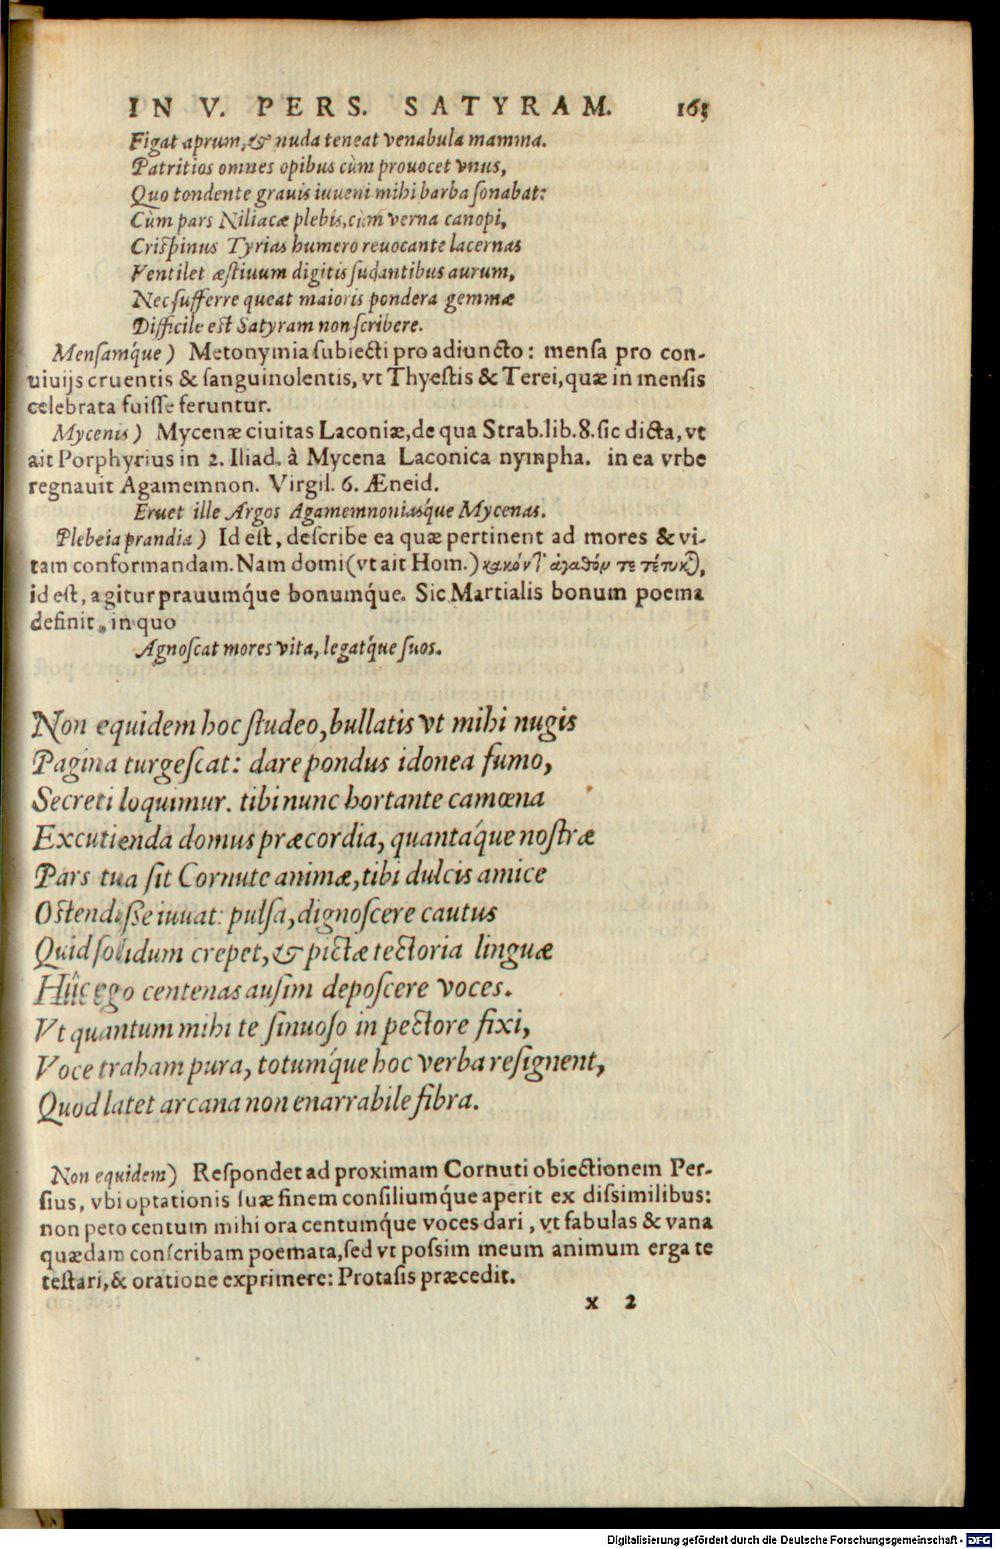 IN V. PERS. SATYRAM. 163
Figat aprum, & nuda teneat venabula mamma.
Patritios omnes opibus cùm prouocet vnus,
Quo tondente grauis iuueni mihi barba sonabat:
Cùm pars Niliacæ plebis, cùm verna canopi,
Crispinus Tyrias humero reuocante lacernas
Ventilet æstiuum digitis sudantibus aurum,
Nec sufferre queat maioris pondera gemmæ
Difficile est Satyram non scribere.
Mensamq́ue) Metonymia subiecti pro adiuncto: mensa pro con-
uiuijs cruentis & sanguinolentis, vt Thyestis & Terei, quæ in mensis
celebrata fuisse feruntur.
Mycenis) Mycenæ ciuitas Laconiæ, de qua Strab. lib. 8. sic dicta, vt
ait Porphyrius in 2. Iliad. à Mycena Laconica nympha. in ea vrbe
regnauit Agamemnon. Virgil. 6. Æneid.
Eruet ille Argos Agamemnoniasq́ue Mycenas.
Plebeia prandia) Id est, describe ea quæ pertinent ad mores & vi-
tam conformandam. Nam domi (vt ait Hom.) κακόν τ' ἀγαθόν τε τέτυκται,
id est, agitur prauumq́ue bonumq́ue. Sic Martialis bonum poema
definit, in quo
Agnoscat mores vita, legatq́ue suos.
Non equidem hoc studeo, bullatis vt mihi nugis
Pagina turgescat: dare pondus idonea fumo,
Secreti loquimur. tibi nunc hortante camœna
Excutienda domus præcordia, quantaq́ue nostræ
Pars tua sit Cornute animæ, tibi dulcis amice
Ostendisse iuuat: pulsa, dignoscere cautus
Quid solidum crepet, & pictæ tectoria linguæ
Hîc ego centenas ausim deposcere voces.
Vt quantum mihi te sinuoso in pectore fixi,
Voce traham pura, totumq́ue hoc verba resignent,
Quod latet arcana non enarrabile fibra.
Non equidem) Respondet ad proximam Cornuti obiectionem Per-
sius, vbi optationis suæ finem consiliumq́ue aperit ex dissimilibus:
non peto centum mihi ora centumq́ue voces dari, vt fabulas & vana
quædam conscribam poemata, sed vt possim meum animum erga te
testari, & oratione exprimere: Protasis præcedit.
x 2
Digitalisierung gefördert durch die Deutsche Forschungsgemeinschaft - DFG